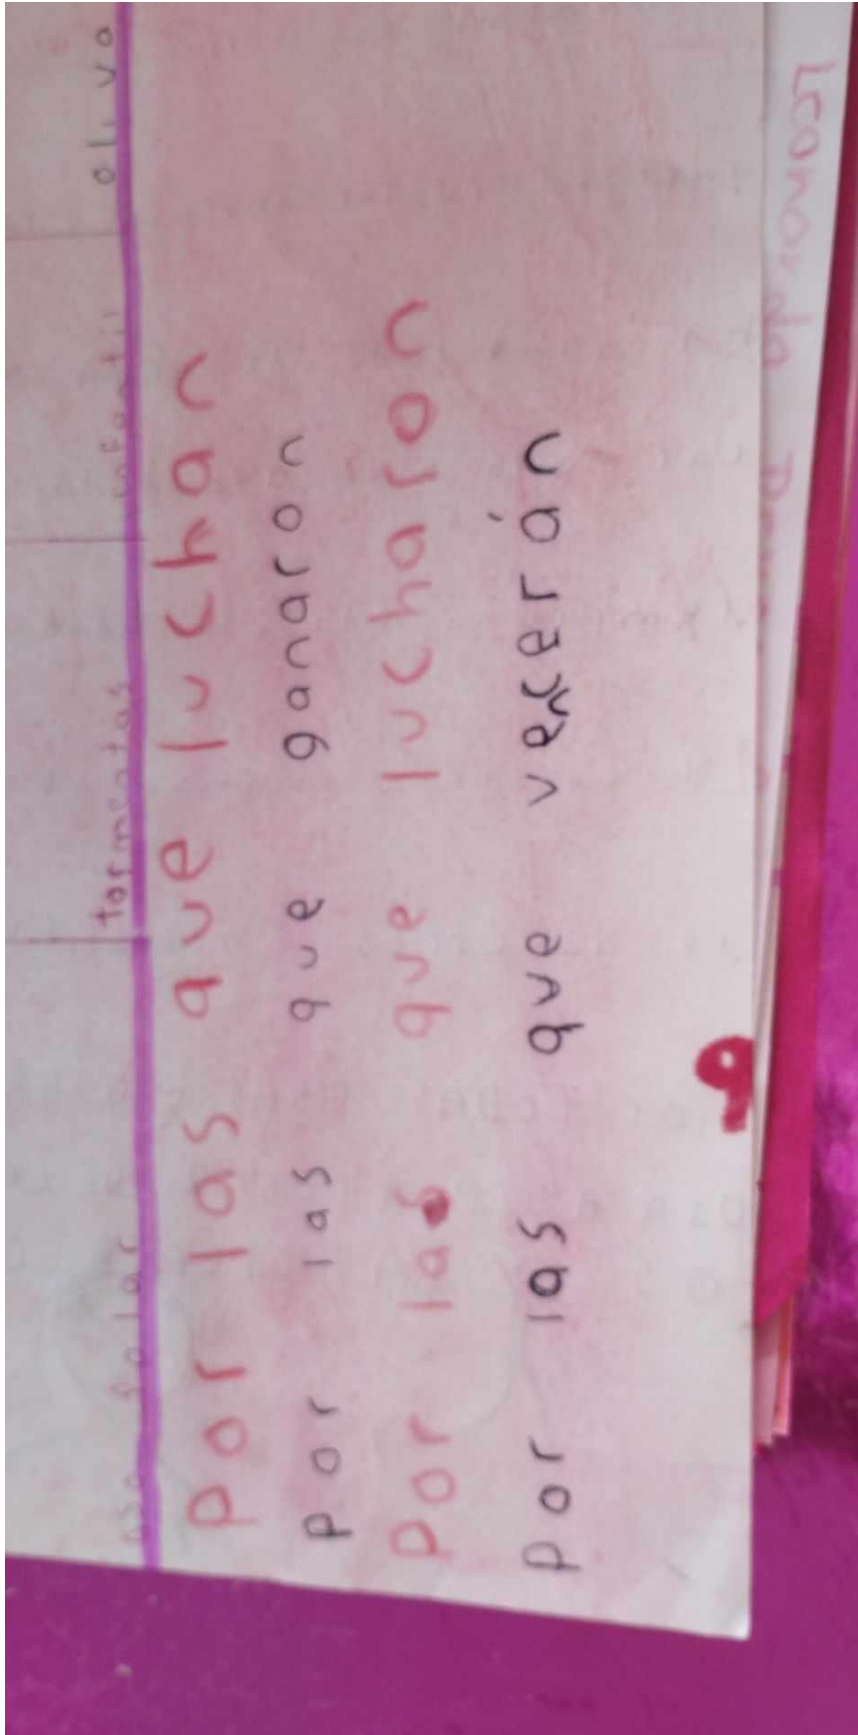 tormentas infantil oliva
Por las que luchan
por las que ganaron
Por las que lucharon
por las que vencerán
9
Leonardo